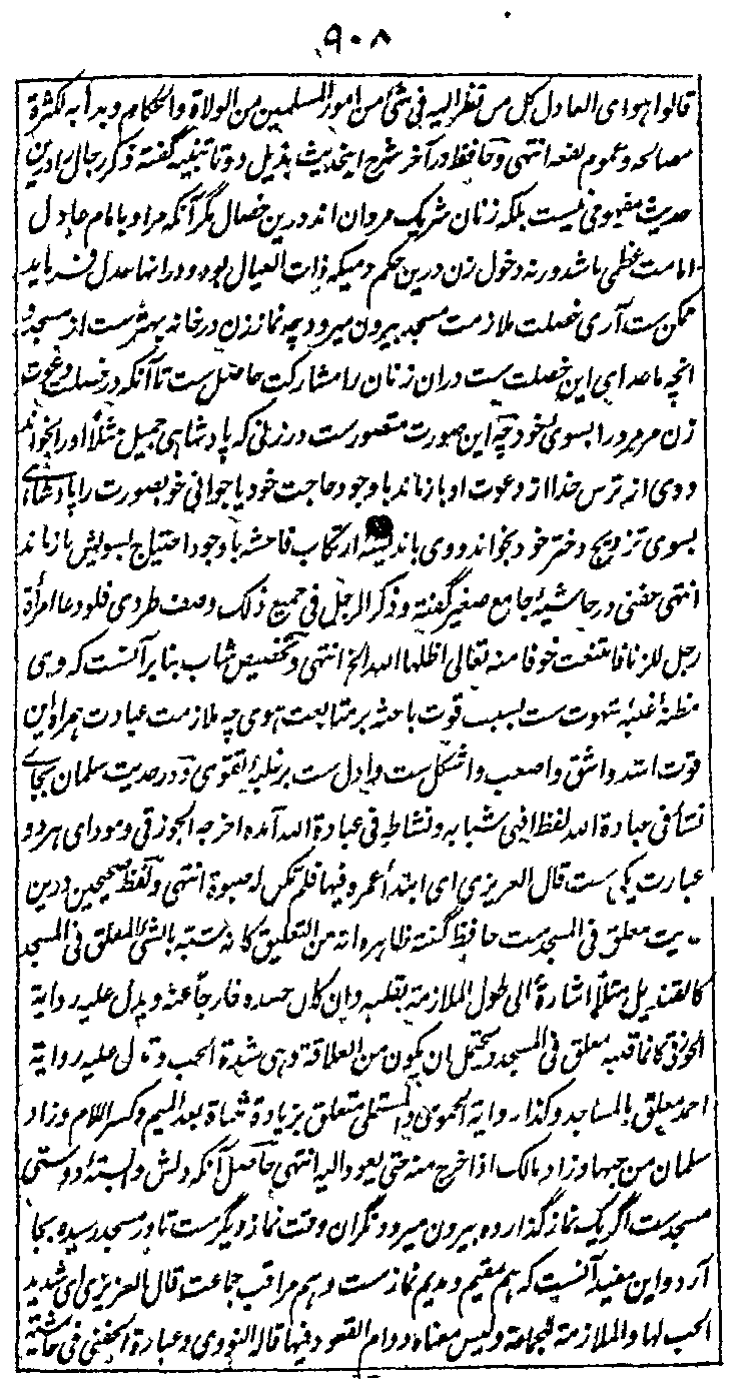 ۹۰۸
قالوا هو ای العادل کل من نظر الیه فی شئ من امور المسلمین من الولاة والحکام وبدأ به لکثرة
مصالحه وعموم نفعه انتهی وحافظ در آخر شرح این حدیث بذیل دو تا تنبیه گفته ذکر رجال را درین
حدیث مفهومی نیست بلکه زنان شریک مردان اند درین خصال مگر آنکه مراد بامام عادل
امامت عظمی باشد ورنه دخول زن درین حکم دمیکه ذات العیال بود و در انها عدل فرماید
ممکن ست آری خصلت ملازمت مسجد بیرون میرود چه نماز زن در خانه بهتر ست از مسجد و
انچه ماعدای این خصلت ست دران زنان را مشارکت حاصل ست تا آنکه در خصلت دعوت
زن مر مرد را بسوی خود چه این صورت متصور ست در زنی که پادشاهی جمیل مثلاً او را بخواند
و وی از ترس خدا از دعوت او باز ماند باوجود حاجت خود یا جوانی خوبصورت را پادشاهی
بسوی تزویج دختر خود بخواند و وی باندیشه ارتکاب فاحشه باوجود احتیاج بسویش باز ماند
انتهی حفنی در حاشیهٔ جامع صغیر گفته وذکر الرجل فی جمیع ذلک وصف طردی فلو دعا امرأة
رجل للزنا فامتنعت خوفا منه تعالی اظلها الله الخ انتهی وتخصیص شاب بنابر آنست که وی
مظنهٔ غلبهٔ شهوت ست بسبب قوت باعثه بر متابعت هوی چه ملازمت عبادت همراه این
قوت اشد واشق واصعب واشکل ست وادل ست بر غلبهٔ تقوی و در حدیث سلمان بجای
نشأ فی عبادة الله لفظ افنی شبابه ونشاطه فی عبادة الله آمده اخرجه الجوزقی ومودای هر دو
عبارت یکی ست قال العزیزی ای ابتدأ عمره فیها فلم تکن له صبوة انتهی ولفظ صحیحین درین
حدیث معلق فی المسجد ست حافظ گفته ظاهره انه من التعلیق کانه شبه بالشئ المعلق فی المسجد
کالقندیل مثلاً اشارة الی طول الملازمة بقلبه وان کان جسده خارجاً عنه ویدل علیه روایة
الجوزقی کانما قلبه معلق فی المسجد ویحتمل ان یکون من العلاقة وهی شدة الحب ویدل علیه روایة
احمد معلق بالمساجد وکذا روایة الحموی والمستملی متعلق بزیادة مثناة بعد المیم وکسر اللام وزاد
سلمان من حبها وزاد مالک اذا خرج منه حتی یعود الیه انتهی حاصل آنکه دلش وابستهٔ دوستی
مسجد ست اگر یک نماز گذارده بیرون میرود نگران وقت نماز دیگر ست تا در مسجد رسیده بجا
آرد و این مفید آنست که هم مقیم ومدیم نماز ست وهم مراقب جماعت قال العزیزی ای شدید
الحب لها والملازمة للجماعة ولیس معناه دوام القعود فیها قاله النووی وعبارة الحفنی فی حاشیة